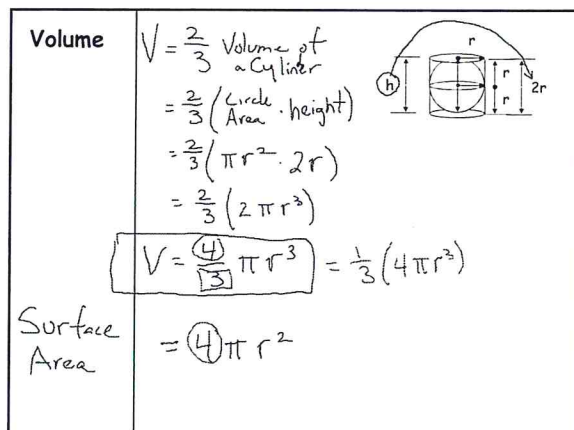 Volume
V = 2/3 Volume of a Cyliner
= 2/3 (Circle Area · height)
= 2/3 (πr² · 2r)
= 2/3 (2πr³)
V = 4/3 πr³ = 1/3 (4πr³)
Surface Area = 4πr²
r
h
r
r
2r